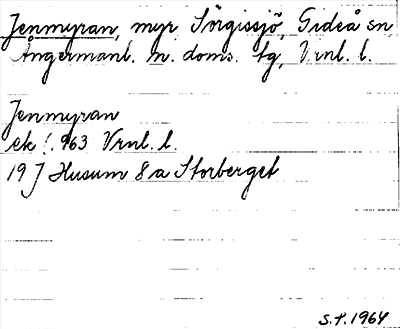 Jenmyran, myr, Sörgissjö, Gideå sn,
Ångermanl. n. doms. tg, Vrnl. l.
Jenmyran
ek!. 963 Vrnl. l.
19 J Husum 8 a Storberget
S.P. 1964